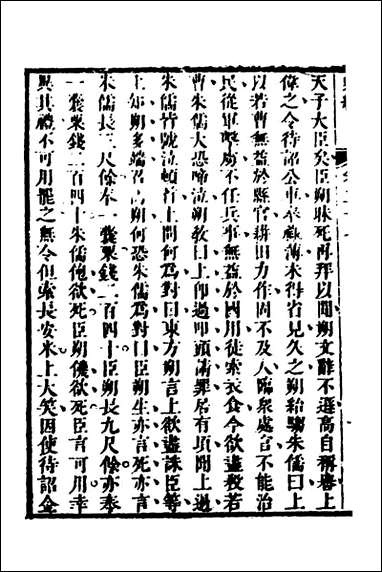 天子大臣矣臣朔昧死再拜以聞朔文辭不遜高自稱譽上
偉之令待詔公車奉祿薄未得省見久之朔紿騶朱儒曰上
以若曹無益於縣官耕田力作固不及人臨衆處官不能治
民從軍擊虜不任兵事無益於國用徒索衣食今欲盡殺若
曹朱儒大恐啼泣朔敎曰上即過叩頭請罪居有頃聞上過
朱儒皆號泣頓首上問何爲對曰東方朔言上欲盡誅臣等
上知朔多端召問朔何恐朱儒爲對曰臣朔生亦言死亦言
朱儒長三尺餘奉一囊粟錢二百四十臣朔長九尺餘亦奉
一囊粟錢二百四十朱儒飽欲死臣朔饑欲死臣言可用幸
異其禮不可用罷之無令但索長安米上大笑因使待詔金